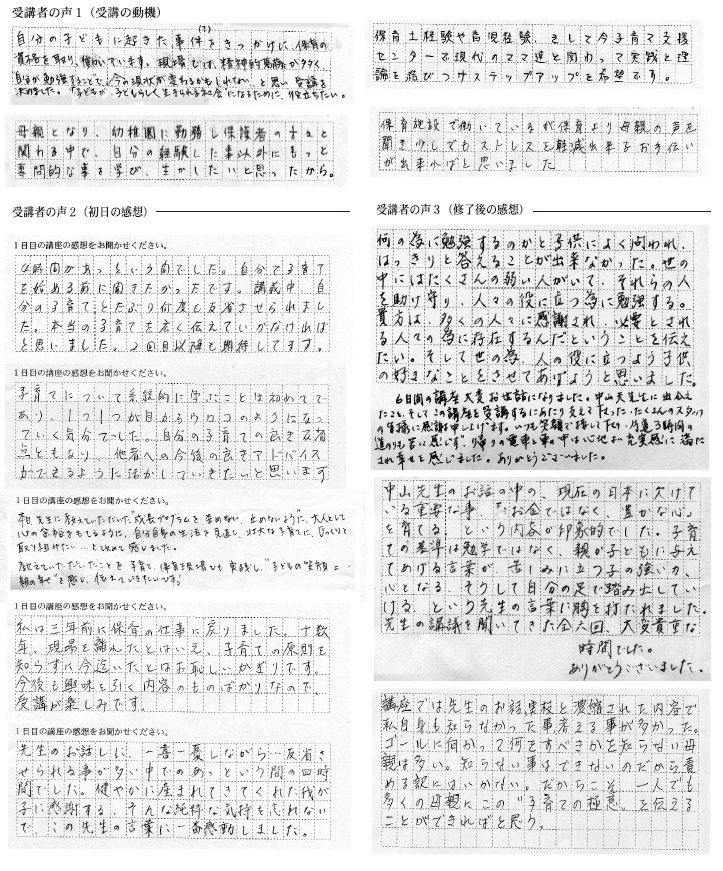 受講者の声1（受講の動機）
自分の子どもに起きた事件をきっかけに、保育の
資格を取り、働いています。現場では、精神的葛藤が多く、
自分が勉強することで今の現状が変わるかもしれない、と思い受講を
決めました。「子どもが子どもらしく生きられる社会」になるために、役立ちたい。
母親となり、幼稚園に勤務し保護者の方々と
関わる中で、自分の経験した事以外にもっと
専門的な事を学び、生かしたいと思ったから。
保育士経験や育児経験、そして今子育て支援
センターで現代のママ達と関わって実践と理
論を結びつけステップアップを希望です。
保育施設で働いているが保育より母親の声を
聞き少しでもストレスを軽減出来るお手伝い
が出来ればと思いました
受講者の声2（初日の感想）
1日目の講座の感想をお聞かせください。
4時間があっという間でした。自分で子育て
を始める前に聞きたかったです。講義中、自
分の子育てとだぶり何度も反省させられまし
た。本当の子育てを広く伝えていかなければ
と思いました。2回目以降も期待してます。
1日目の講座の感想をお聞かせください。
子育てについて系統的に学ぶことは初めてで
あり、1つ1つが目からウロコのようになっ
ていく気分でした。自分の子育ての良き反省
点ともなり、他者への今後の良きアドバイス
ができるように活かしていきたいと思います
1日目の講座の感想をお聞かせください。
本日、先生に教えていただいた"成長プログラムを歪めない、止めないように"、大人として
心の余裕をもてるように、自分自身の生活を見直し、壮大な子育てに、じっくりと
取り組みたい…と改めて感じました。
教えていただいたことを子育て、保育現場でも実践し、"子どもの笑顔＝
親の幸せ"を感じ、伝えていきたいです！
1日目の講座の感想をお聞かせください。
私は三年前に保育の仕事に戻りました。十数
年、現場を離れたとはいえ、子育ての原則を
知らずに今迄いたとはお恥しいかぎりです。
今後も興味を引く内容のものばかりなので、
受講が楽しみです。
1日目の講座の感想をお聞かせください。
先生のお話しに、一喜一憂しながら…反省さ
せられる事が多い中でのあっという間の四時
間でした。健やかに産まれてきてくれた我が
子に感謝する、そんな純粋な気持を忘れない
で、この先生の言葉に一番感動しました。
受講者の声3（修了後の感想）
何の為に勉強するのかと子供によく問われ、
はっきりと答えることが出来なかった。世の
中にはたくさんの弱い人がいて、それらの人
を助け守り、人々の役に立つ為に勉強する。
貴方は、多くの人々に感謝され、必要とされ
る人々の為に存在するんだということを伝え
たい。そして世の為、人の役に立つよう子供
の好きなことをさせてあげようと思いました。
6日間の講座大変お世話になりました。中山先生に出会え
たこと、そしてこの講座を受講するにあたり支えて下さった、たくさんのスタッフ
の皆様に感謝申し上げます。いつも笑顔で接して下さり、片道3時間の
道のりも苦に感じず、帰りの電車と車の中は心地よい充実感に満た
され幸せを感じました。ありがとうございました。
中山先生のお話の中の、現在の日本に欠けて
いる重要な事、「お金ではなく、豊かな心」
を育てる、という内容が印象的でした。子育
ての基準は勉学ではなく、親が子どもに与え
てあげる言葉が、苦しみに立つ子の強い力、
心となる、そうして自分の足で踏み出してい
ける、という先生の言葉に胸を打たれました。
先生の講義を聞いてきた全六回、大変貴重な
時間でした。
ありがとうございました。
講座では先生のお話実技と濃縮された内容で
私自身も知らなかった事考える事が多かった。
ゴールに向かって何をすべきかを知らない母
親は多い。知らない事はできないのだから責
める訳にはいかない。だからこそ、一人でも
多くの母親にこの"子育ての極意"を伝える
ことができればと思う。